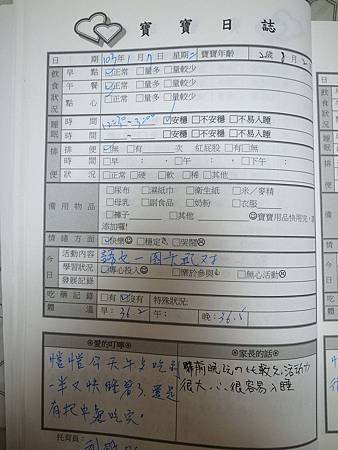 寶寶日誌
日期 105年1月 日 星期二 寶寶年齡 2歲 月
飲食狀況 早點 ☑正常 □量多 □量較少
午餐 ☑正常 □量多 □量較少
點心 ☑正常 □量多 □量較少
睡眠 時間 12:30-3:00 ☑安穩 □不安穩 □不易入睡
時間 - □安穩 □不安穩 □不易入睡
排便狀況 排便 ☑無 □有 次 紅屁股 □有 □無
時間 □早: □午: □下午:
便狀 □正常 □硬 □軟 □稀 □其他
備用物品 □尿布 □濕紙巾 □衛生紙 □米/麥精
□母乳 □副食品 □奶粉 □衣服
□褲子 □其他 ☺寶寶用品快用完,請
添加囉!
情緒方面 ☑快樂☺ □穩定 □哭鬧☹
今日 活動內容 語文-圖卡配對
學習狀況 □專心投入☺ □樂於參與 □無心活動☹
發展記錄
吃藥記錄 □有 ☑沒有 特殊狀況:
體溫 早:36.2 午: 晚:36.5
愛的叮嚀
家長的話
愷愷今天午點吃到
一半又快睡著了,還是
有把中餐吃完!
睡前晚玩的比較久,活動力
很大...很容易入睡
托育員: